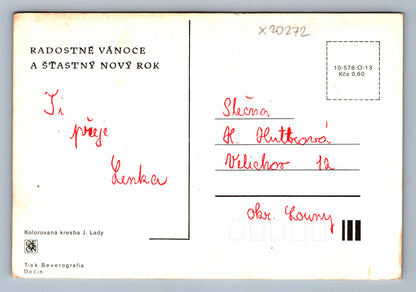 X20272
RADOSTNÉ VÁNOCE
A ŠŤASTNÝ NOVÝ ROK
Ti
přeje
Lenka
Kolorovaná kresba J. Lady
Tisk Severografia
Děčín
10-578-O-13
Kčs 0,60
Slečna
H. Huttrová
Velichov 12
Okr. Louny